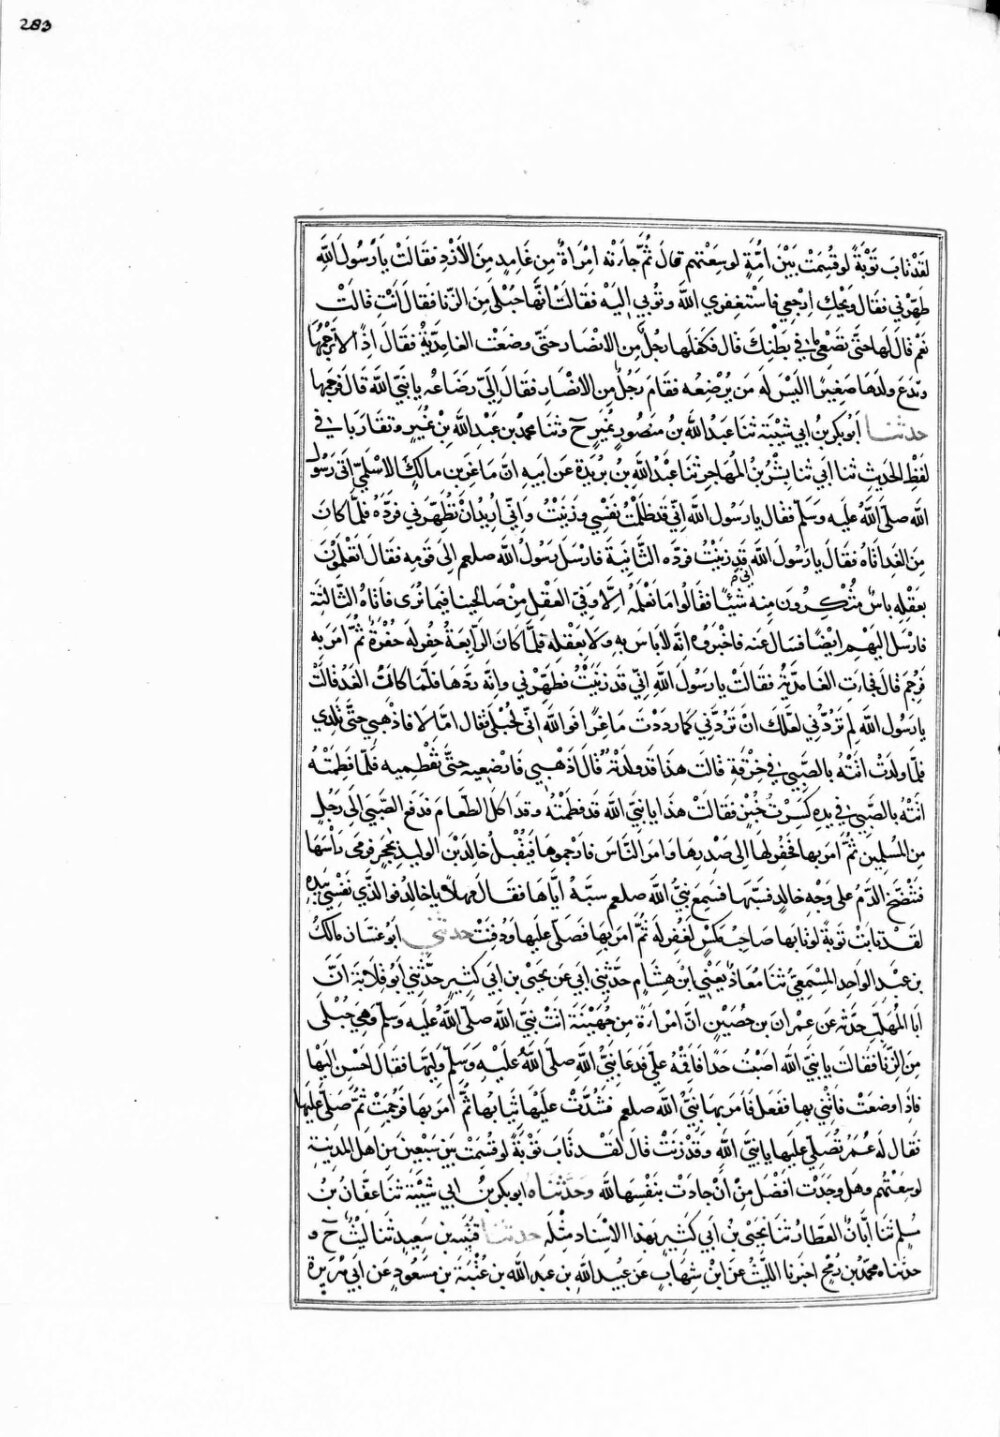 283
لقد تاب توبة لو قسمت بين امة لوسعتهم قال ثم جاءته امراة من غامد من الازد فقالت يا رسول الله
طهرني فقال ويحك ارجعي فاستغفري الله وتوبي اليه فقالت انها حبلى من الزنا فقال انت قالت
نعم قال لها حتى تضعي ما في بطنك قال فكفلها رجل من الانصار حتى وضعت الغامدية فقال اذا لا نرجمها
وندع ولدها صغيرا اليس له من يرضعه فقام رجل من الانصار فقال الي رضاعه يا نبي الله قال فرجمها
حدثنا ابو بكر بن ابي شيبة ثنا عبد الله بن منصور نمير ح وثنا محمد بن عبد الله بن نمير وتقاربا في
لفظ الحديث ثنا ابي ثنا بشر بن المهاجر ثنا عبد الله بن بريدة عن ابيه ان ماعز بن مالك الاسلمي اتى رسول
الله صلى الله عليه وسلم فقال يا رسول الله اني قد ظلمت نفسي وزنيت واني اريد ان تطهرني فرده فلما كان
من الغد اتاه فقال يا رسول الله قد زنيت فرده الثانية فارسل رسول الله صلعم الى قومه فقال اتعلمون
بعقله باس تنكرون منه شيئا فقالوا ما نعلمه الا وفي العقل من صالحينا فيما نرى فاتاه الثالثة
فارسل اليهم ايضا فسال عنه فاخبروه انه لا باس به ولا بعقله فلما كان الرابعة حفر له حفرة ثم امر به
فرجم قال فجاءت الغامدية فقالت يا رسول الله اني قد زنيت فطهرني وانه ردها فلما كانت الغد قالت
يا رسول الله لم تردني لعلك ان تردني كما رددت ماعزا فوالله اني لحبلى فقال اما لا فاذهبي حتى تلدي
فلما ولدت اتته بالصبي في خرقة قالت هذا قد ولدته قال اذهبي فارضعيه حتى تفطميه فلما فطمته
اتته بالصبي في يده كسرت خبز فقالت هذا يا نبي الله قد فطمته وقد اكل الطعام فدفع الصبي الى رجل
من المسلمين ثم امر بها فحفر لها الى صدرها وامر الناس فارجموها فيقبل خالد بن الوليد بحجر فرمى راسها
فتنضخ الدم على وجه خالد فسبها فسمع نبي الله صلعم سبه اياها فقال مهلا يا خالد فوالذي نفسي بيده
لقد تابت توبة لو تابها صاحب مكس لغفر له ثم امر بها فصلى عليها ودفنت حدثني ابو غسان مالك
بن عبد الواحد المسمعي ثنا معاذ يعني ابن هشام حدثني ابي عن يحيى بن ابي كثير حدثني ابو قلابة ان
ابا المهلب حدثه عن عمران بن حصين ان امراءة من جهينة اتت نبي الله صلى الله عليه وسلم وهي حبلى
من الزنا فقالت يا نبي الله اصبت حدا فاقمه علي فدعا نبي الله صلى الله عليه وسلم وليها فقال احسن اليها
فاذا وضعت فائتني بها ففعل فامر بها نبي الله صلعم فشدت عليها ثيابها ثم امر بها فرجمت ثم صلى عليها
فقال له عمر تصلي عليها يا نبي الله وقد زنت قال لقد تاب توبة لو قسمت بين سبعين من اهل المدينة
لوسعتهم وهل وجدت افضل من ان جادت بنفسها لله وحدثناه ابو بكر بن ابي شيبة ثنا عفان بن
مسلم ثنا ابان العطار ثنا يحيى بن ابي كثير بهذا الاسناد مثله حدثنا قتيبه بن سعيد ثنا ليث ح و
حدثناه محمد بن رمح اخبرنا الليث عن ابن شهاب عن عبيد الله بن عبد الله بن عتبة بن مسعود عن ابي هريرة